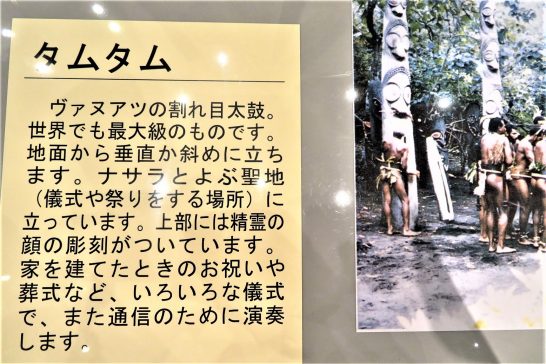 タムタム
ヴァヌアツの割れ目太鼓。
世界でも最大級のものです。
地面から垂直か斜めに立ち
ます。ナサラとよぶ聖地
（儀式や祭りをする場所）に
立っています。上部には精霊の
顔の彫刻がついています。
家を建てたときのお祝いや
葬式など、いろいろな儀式
で、また通信のために演奏
します。